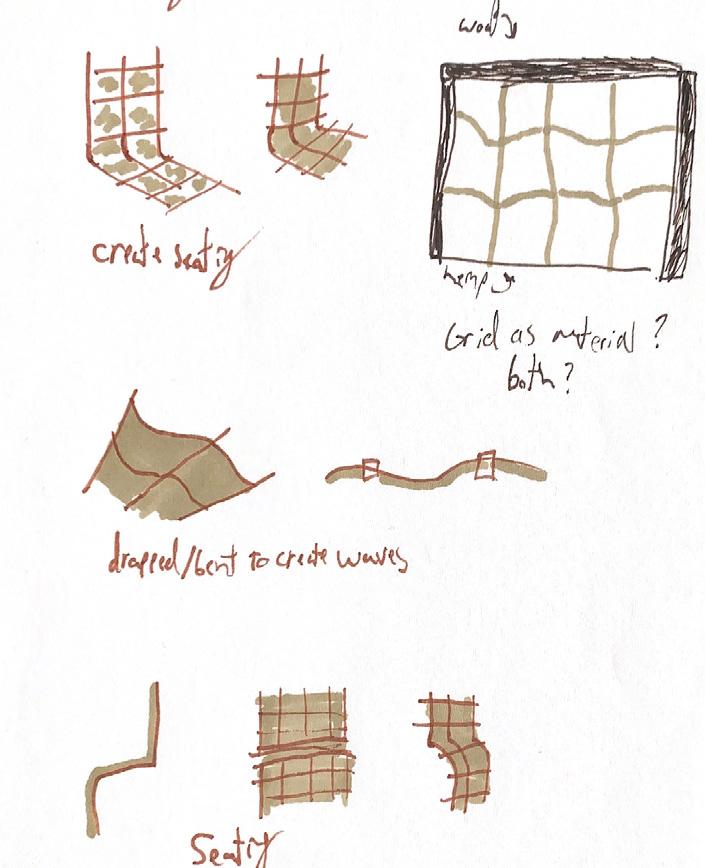 wood
create seating
hemp
Grid as material ?
both ?
drapped/bent to create waves
Seating